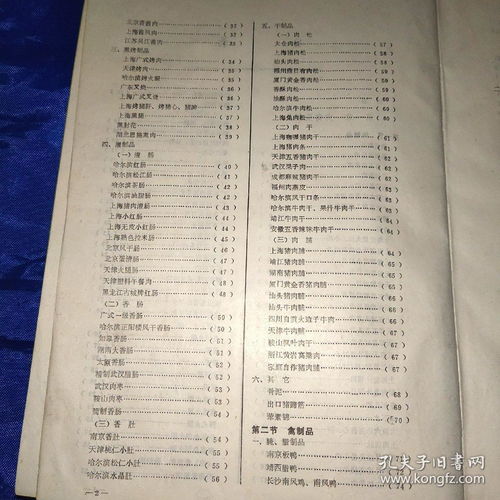 北京香酱肉……(37)
上海酱凤肉……(37)
江苏凤江酱肉……(38)
三、熏烤制品
上海广式烤肉……(34)
天津烤肉……(35)
哈尔滨烤火腿……(35)
广东叉烧……(36)
上海广式叉烧……(36)
上海烤猪肝、烤猪心、猪脾……(37)
上海熏腿……(38)
熏封花……(38)
湖北恩施熏肉……(39)
四、灌制品
(一)灌肠
哈尔滨红肠……(40)
哈尔滨松江肠……(41)
哈尔滨茶肠……(41)
哈尔滨油甜肠……(42)
上海猪肉渣肠……(43)
上海小红肠……(44)
上海无皮小红肠……(44)
上海熟色拉米肠……(45)
北京风干肠……(46)
北京蛋清肠……(47)
天津火腿肠……(47)
天津塑料午餐肉……(48)
黑龙江古城牌红肠……(48)
(二)香肠
广式一级香肠……(50)
哈尔滨正阳楼风干香肠……(50)
如皋香肠……(51)
湖南大香肠……(51)
太原香肠……(52)
精制武汉腊肠……(52)
武汉肉枣……(53)
鞍山肉枣……(53)
精制香肠……(54)
(三)香肚
南京香肚……(54)
天津桃仁小肚……(54)
哈尔滨松仁小肚……(55)
哈尔滨水晶肚……(56)
—2—
五、干制品
(一)肉松
太仓肉松……(57)
上海猪肉松……(57)
汕头肉松……(58)
厦门黄金香肉松……(59)
香酥肉松……(59)
油酥肉松……(60)
哈尔滨牛肉松……(60)
上海鱼肉松……(60)
(二)肉干
上海咖喱猪肉干……(61)
上海猪肉条……(61)
天津五香猪肉干……(62)
武汉果子肉……(62)
成都麻辣猪肉干……(62)
福州肉燕皮……(63)
哈尔滨风干口条……(63)
哈尔滨牛肉干、果丹牛肉干……(63)
靖江牛肉干……(63)
安徽五香辣味牛肉干……(64)
(三)肉脯
上海猪肉脯……(64)
靖江猪肉脯……(64)
湖南猪肉脯……(65)
厦门黄金香猪肉脯……(65)
汕头猪肉脯……(65)
汕头牛肉脯……(66)
四川自贡火边子牛肉……(66)
天津牛肉脯……(66)
鞍山枫叶肉干……(67)
丽江黄岩窝脆肉……(67)
家庭自作猪肉脯……(67)
六、其它
骨泥……(68)
出口猪蹄筋……(69)
苹素锦……(70)
第二节 禽制品
一、腌、腊制品
南京板鸭……(71)
靖西腊鸭……
长沙南风鸡、南凤鸭……(74)
孔夫子旧书网